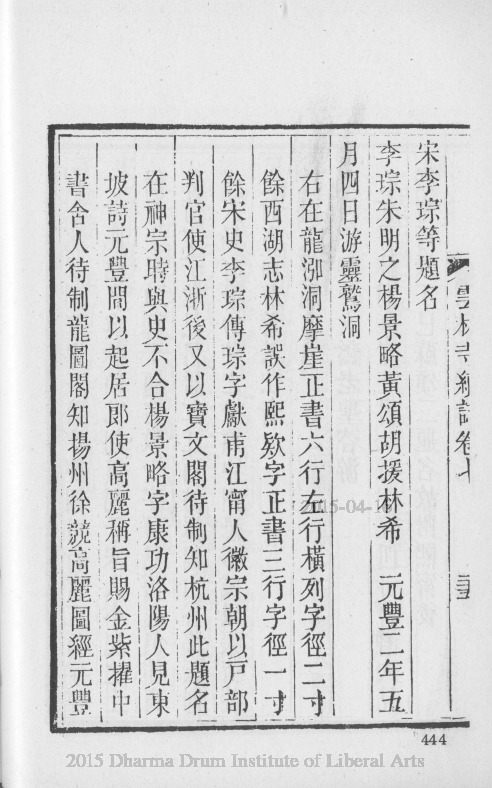 雲林寺續誌卷七
宋李琮等題名
李琮朱明之楊景略黃頌胡援林希　元豐二年五
月四日游靈鷲洞
右在龍泓洞摩崖正書六行左行橫列字徑二寸
餘西湖志林希誤作熙欵字正書三行字徑一寸
餘宋史李琮傳琮字獻甫江甯人徽宗朝以戸部
判官使江浙後又以寶文閣待制知杭州此題名
在神宗時與史不合楊景略字康功洛陽人見東
坡詩元豐間以起居郎使高麗稱旨賜金紫擢中
書舍人待制龍圖閣知揚州徐兢高麗圖經元豐
444
2015-04-1
2015 Dharma Drum Institute of Liberal Arts